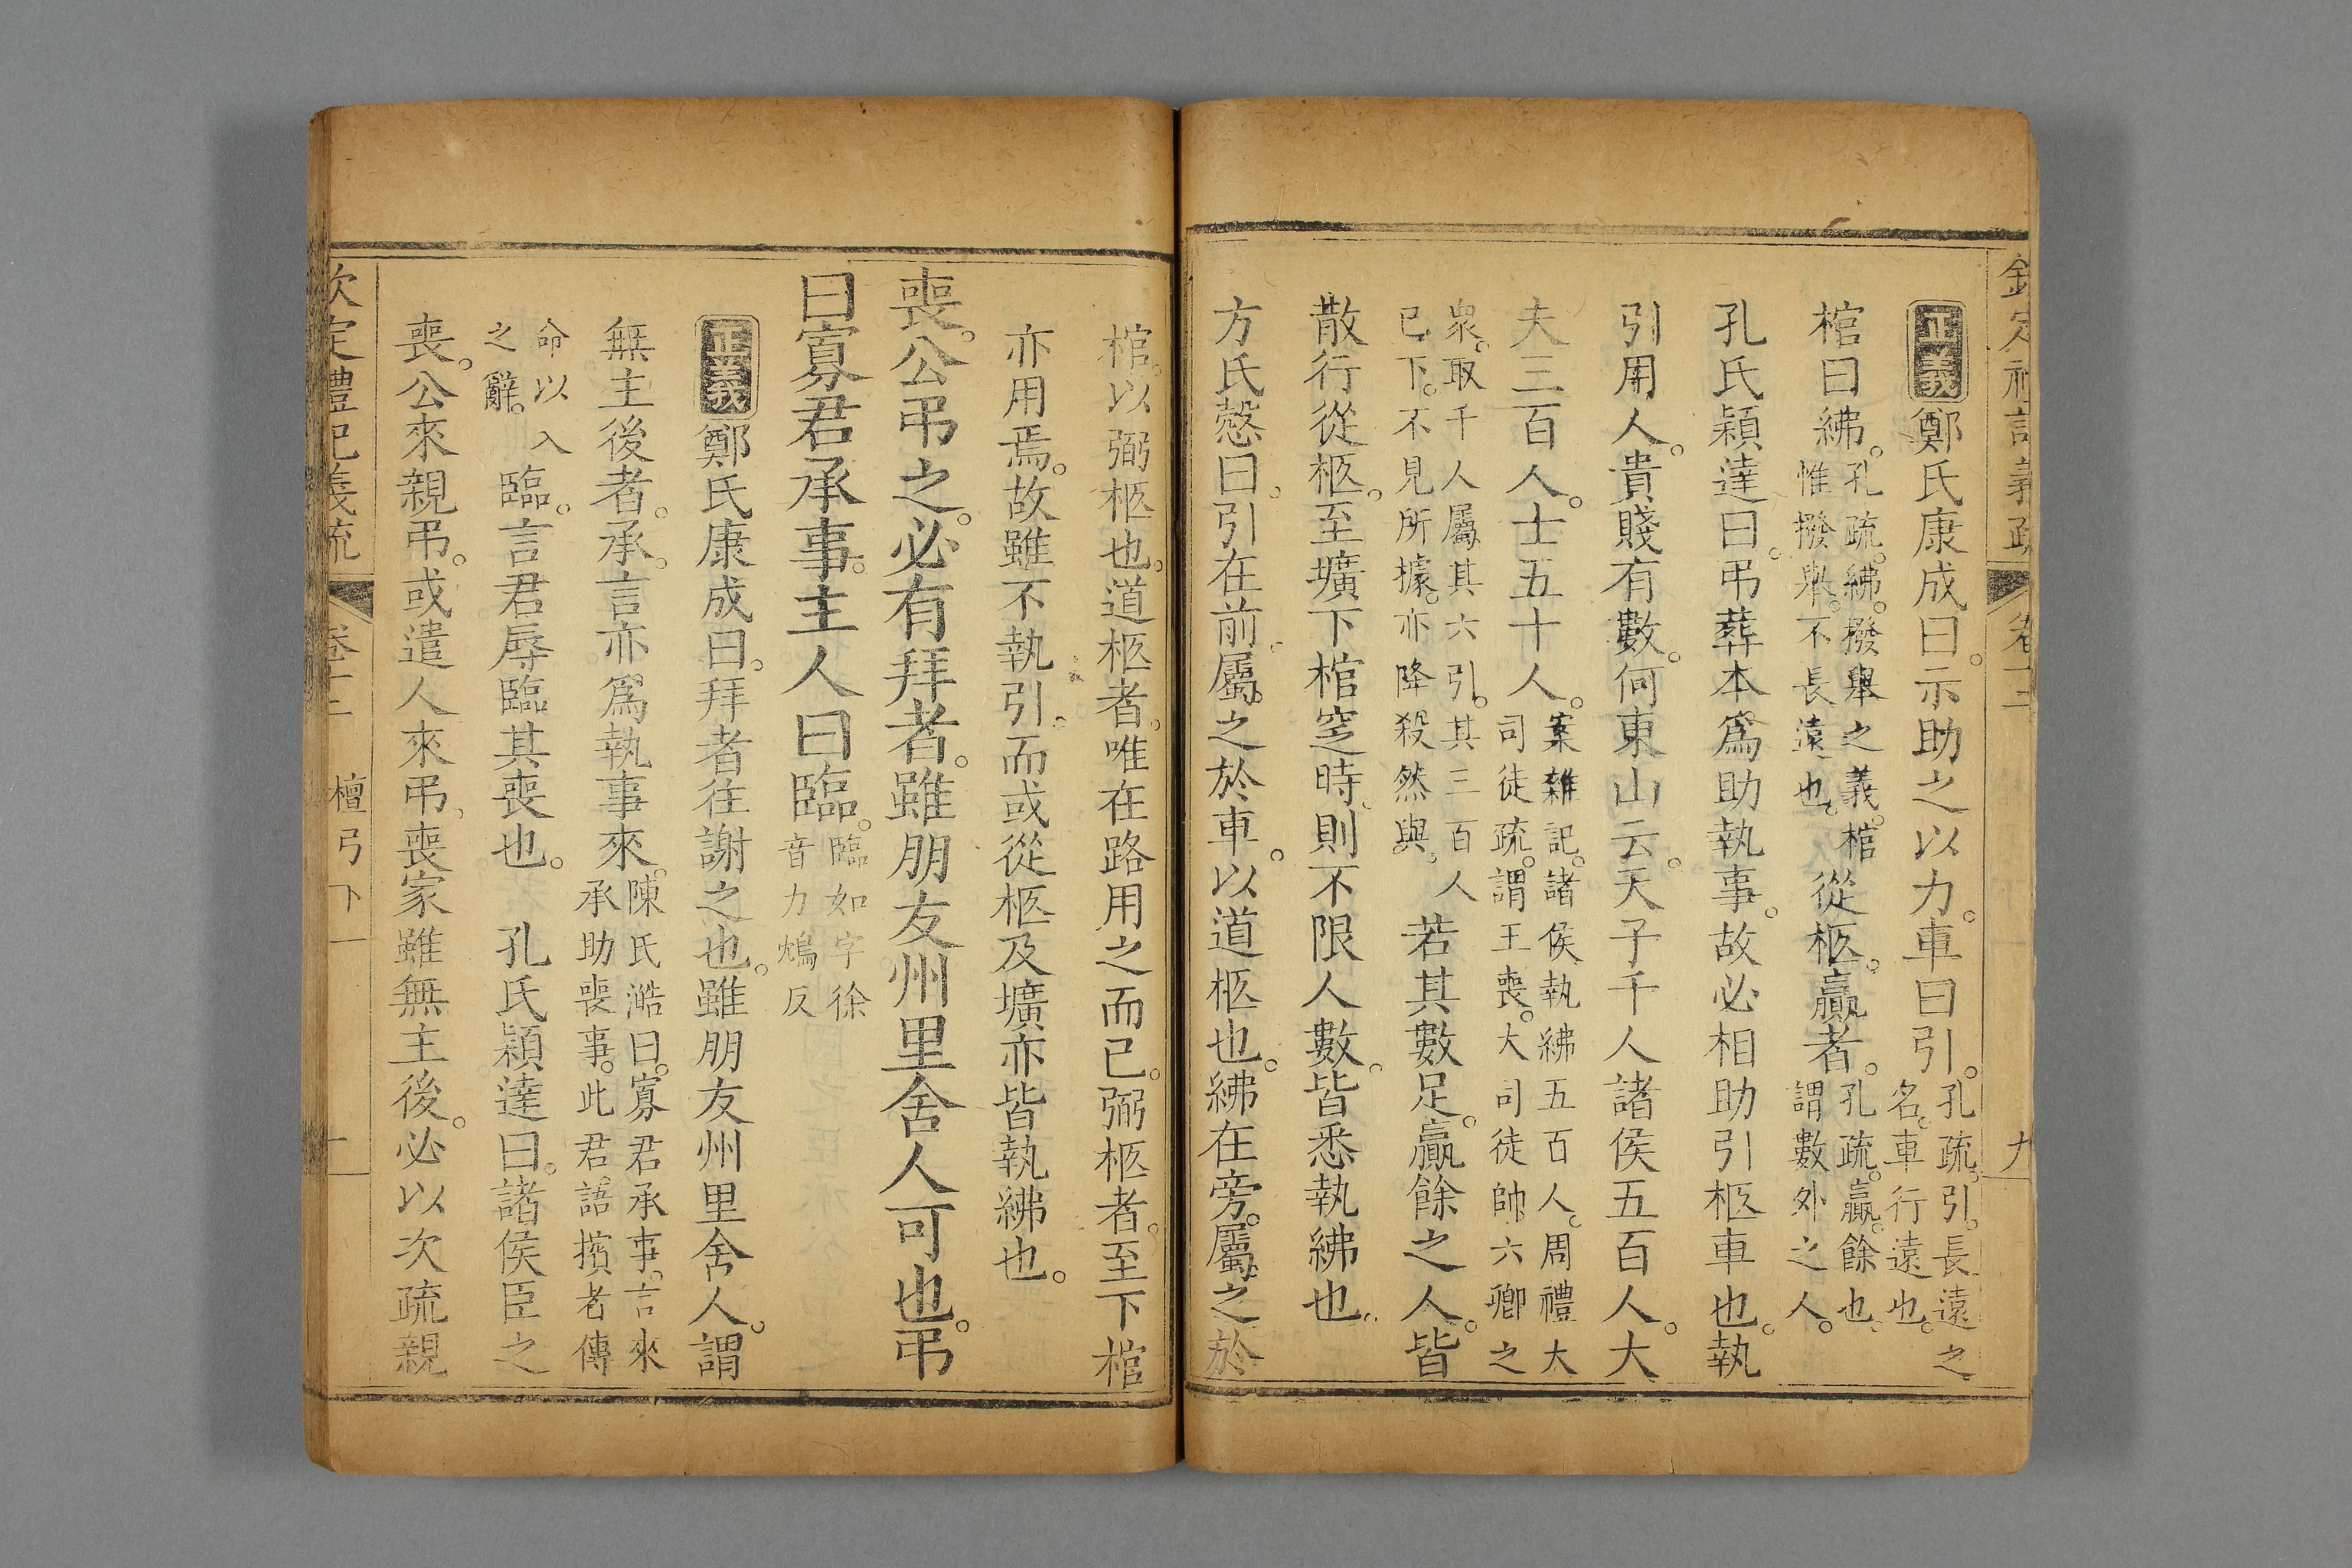 欽定禮記義疏 卷十三 九
正義 鄭氏康成曰。示助之以力。車曰引。孔疏。引。長遠之名。車行遠也。
棺曰紼。孔疏。紼。撥舉之義。棺惟撥舉。不長遠也。從柩。贏者。孔疏。贏。餘也。謂數外之人。
孔氏穎達曰。弔葬本爲助執事。故必相助引柩車也。執
引用人。貴賤有數。何東山云。天子千人諸侯五百人。大
夫三百人。士五十人。案雜記。諸侯執紼五百人。周禮大司徒疏。謂王喪。大司徒帥六鄉之
衆。取千人屬其六引。其三百人已下。不見所據。亦降殺然與。若其數足。贏餘之人。皆
散行從柩。至壙下棺窆時。則不限人數。皆悉執紼也。
方氏慤曰。引在前。屬之於車。以道柩也。紼在旁。屬之於
棺。以弼柩也。道柩者。唯在路用之而已。弼柩者。至下棺
亦用焉。故雖不執引。而或從柩及壙。亦皆執紼也。
喪。公弔之。必有拜者。雖朋友州里舍人可也。弔
曰寡君承事。主人曰臨。臨如字徐音力鴆反
正義 鄭氏康成曰。拜者往謝之也。雖朋友州里舍人。謂
無主後者。承。言亦爲執事來。陳氏澔曰。寡君承事。言來承助喪事。此君語擯者傳
命以入之辭。臨。言君辱臨其喪也。 孔氏穎達曰。諸侯臣之
喪。公來親弔。或遣人來弔。喪家雖無主後。必以次疏親
欽定禮記義疏 卷十三 檀弓下一 十